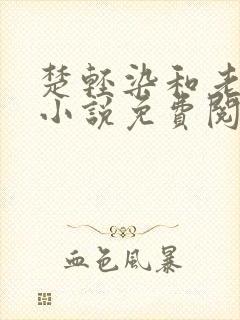 楚轻染和老
小說免費閱
血色風暴